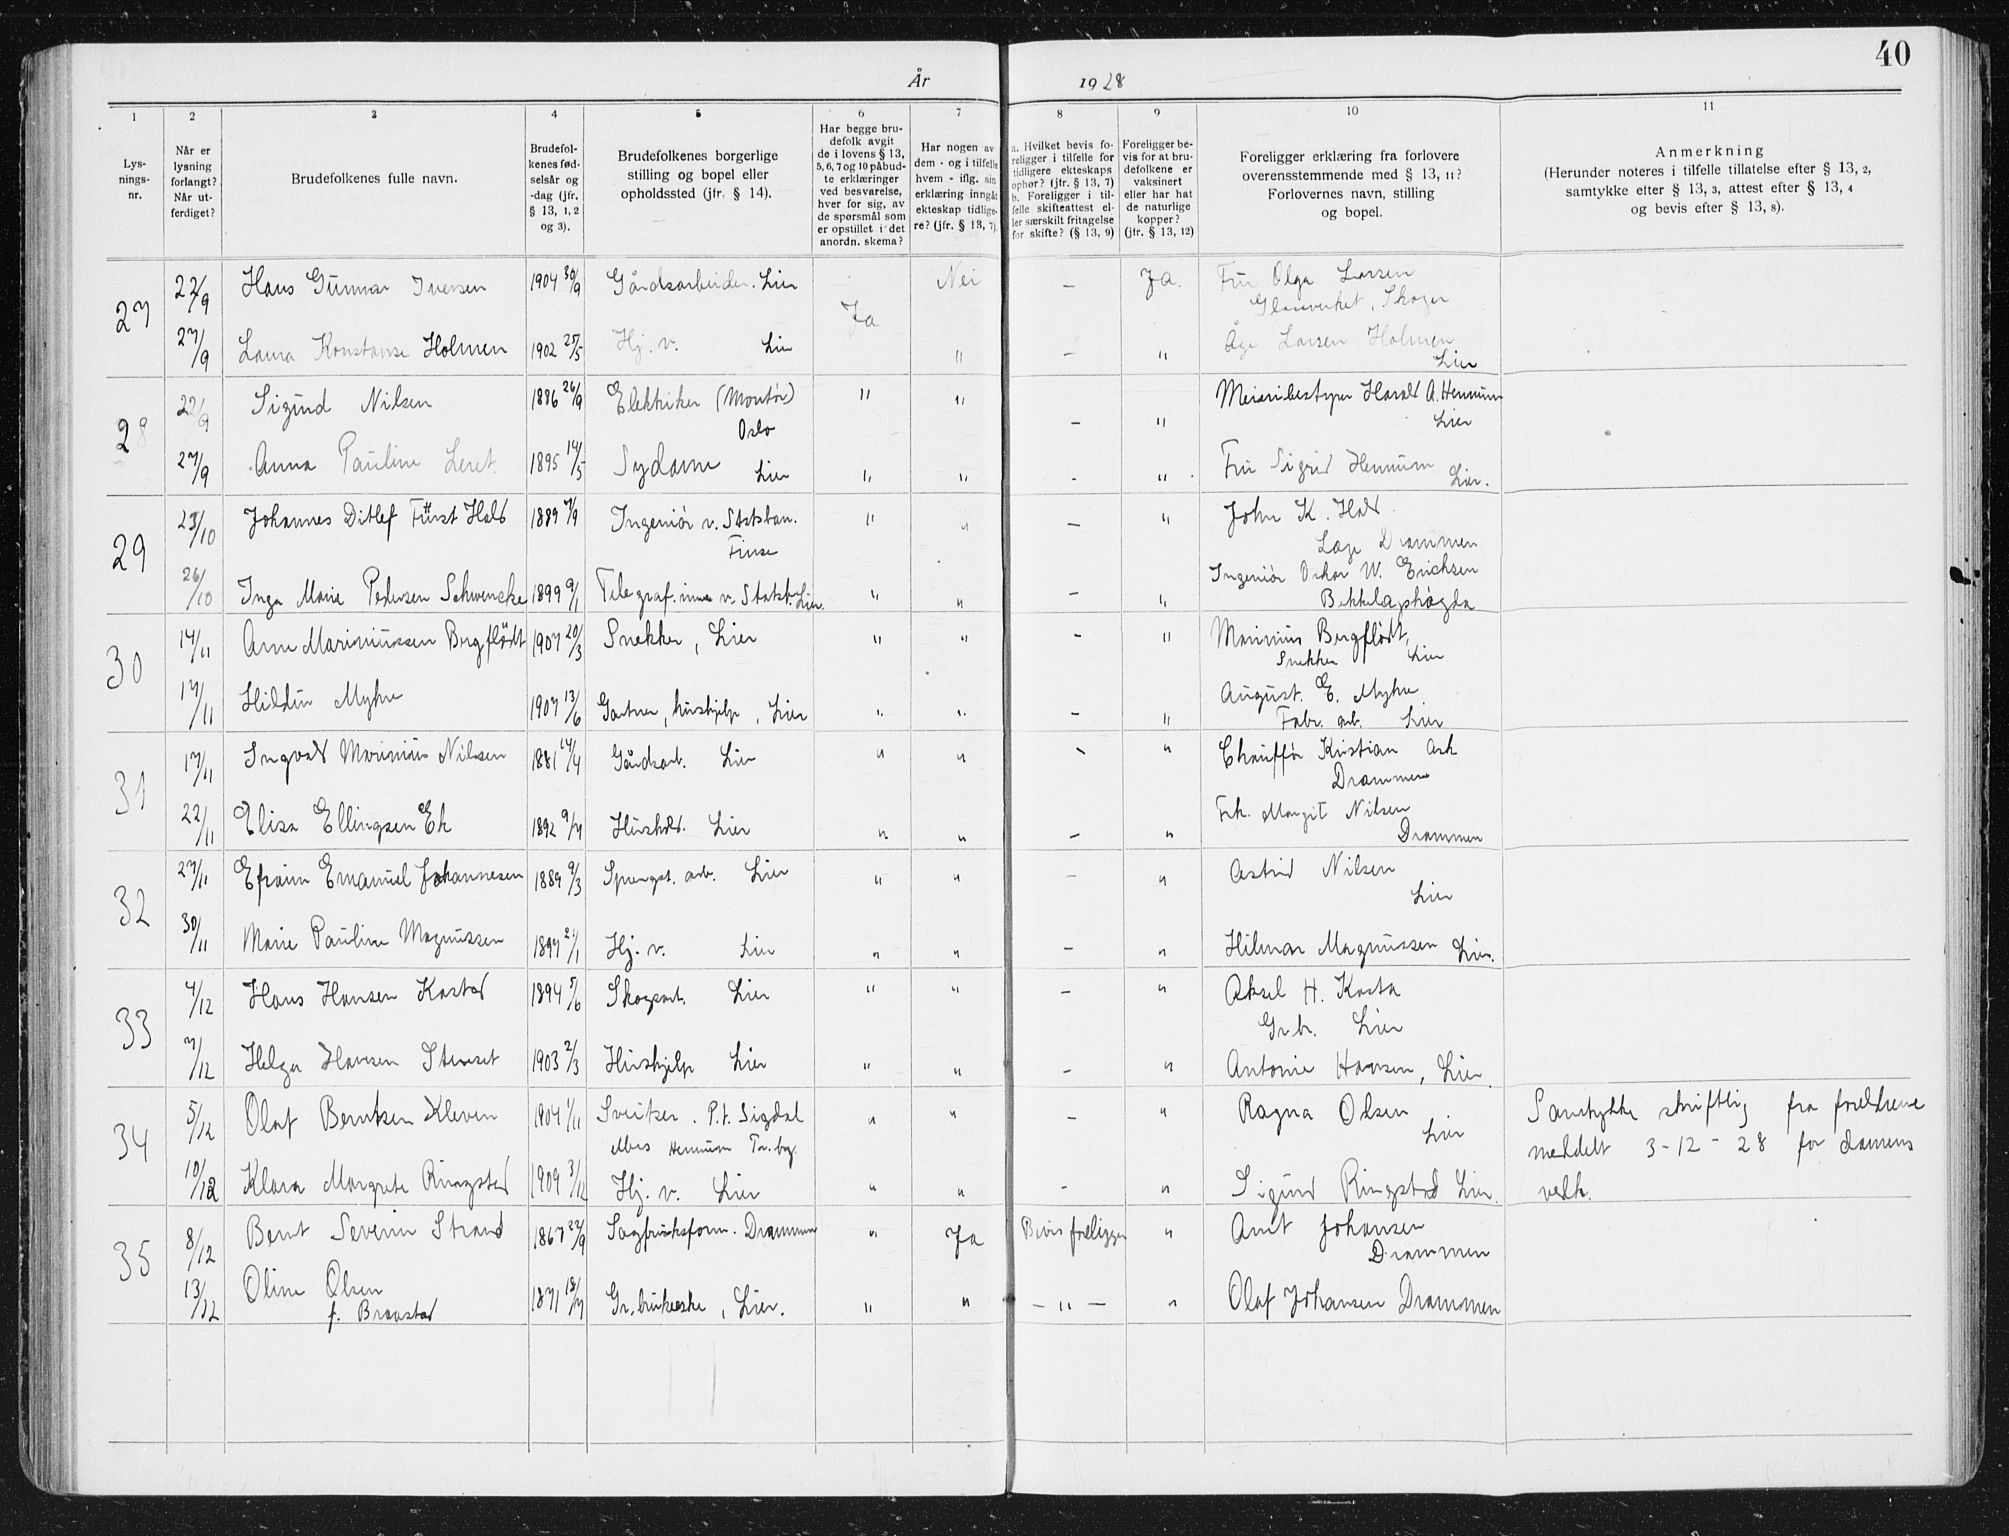 40
År 1928
1 2 3 4 5 6 7 8 9 10 11
Lys-
nings-
nr.
Når er
lysning
forlangt?
Når ut-
ferdiget?
Brudefolkenes fulle navn.
Brudefol-
kenes fød-
selsår og
-dag (jfr.
§ 13, 1, 2
og 3).
Brudefolkenes borgerlige
stilling og bopel eller
opholdssted (jfr. § 14).
Har begge bru-
defolk avgit
de i lovens § 13,
5, 6, 7 og 10 påbud-
te erklæringer
ved besvarelse,
hver for sig, av
de spørsmål som
er opstillet i det
anordn. skema?
Har nogen av
dem - og i tilfelle
hvem - iflg. sin
erklæring inngåt
ekteskap tidlige-
re? (jfr. § 13, 7).
a. Hvilket bevis fo-
religger i tilfelle for
tidligere ekteskaps
ophør? (jfr. § 13, 7)
b. Foreligger i til-
felle skifteattest el-
ler særskilt fritagelse
for skifte? (§ 13, 9)
Foreligger be-
vis for at bru-
defolkene er
vaksinert
eller har hat
de naturlige
kopper?
(jfr. § 13, 12)
Foreligger erklæring fra forlovere
overensstemmende med § 13, 11?
Forlovernes navn, stilling
og bopel.
Anmerkning
(Herunder noteres i tilfelle tillatelse efter § 13, 2,
samtykke efter § 13, 3, attest efter § 13, 4
og bevis efter § 13, 8).
27 22/9 Hans Gunnar Iversen 1904 30/9 Gårdsarbeider. Lier Ja Nei — Ja. Fru Olga Larsen
Glassverket, Skoger
27/9 Laura Konstanse Holmen 1902 25/5 Hj. v. Lier " — " Åge Larsen Holmen
Lier
28 22/9 Sigurd Nilsen 1886 26/9 Elektriker (Montør) " " — " Meieribestyrer Harald A. Hennum
Oslo Lier
27/9 Anna Pauline Leret 1895 14/5 Sydame Lier " " - " Fru Sigrid Hennum Lier.
29 23/10 Johannes Ditlef Fürst Hals 1889 7/9 Ingeniør v. Statsban. " " — " John K. Hals
Finse Drammen
26/10 Inga Marie Pedersen Schwencke 1899 9/1 Telegraf. v. Statsb. Lier. " " — " Ingeniør Oskar W. Erichsen
Bekkelagshøgda
30 14/11 Arne Marinussen Bergflødt 1907 20/3 Snekker, Lier " " - " Marinius Bergflødt,
Snekker Lier
17/11 Hildur Myhre 1907 13/6 Gartner, hushjelp, Lier " " — " August. E. Myhre
Fabr. arb. Lier
31 17/11 Ingvald Marinius Nilsen 1881 14/4 Gårdsarb. Lier " " - " Chauffør Kristian Ask
Drammen
22/11 Elisa Ellingsen Ek 1892 9/7 Hushold. Lier " " — " Frk. Margit Nilsen
Drammen
32 27/11 Efraim Emanuel Johannesen 1889 9/3 Sprengst. arb. Lier " " — " Astrid Nilsen
Lier
30/11 Marie Pauline Magnussen 1897 21/1 Hj. v. Lier " " — " Hilmar Magnussen Lier.
33 4/12 Hans Hansen Kastad 1894 5/6 Skogsarb. Lier " " — " Aksel H. Kasta
Gr.br. Lier
7/12 Helga Hansen Stenset 1903 2/3 Hushjelp Lier " " — " Antonie Hansen, Lier.
34 5/12 Olaf Berntsen Kleven 1904 1/11 Sveitser. P.t. Sigdal " " — " Ragna Olsen
Hennum Tr.bg. Lier
Samtykke skriftlig fra foreldrene
meddelt 3-12-28 for damens
vedk.
10/12 Klara Margrete Ringstad 1909 3/12 Hj. v. Lier " " - " Sigurd Ringstad Lier.
35 8/12 Bernt Severin Strand 1867 22/9 Sagbruksform. Drammen " Ja Bevis foreligger " Amt Johansen
Drammen
13/12 Oline Olsen 1871 18/7 Gr.brukerske, Lier. " " — " — " Olaf Johansen Drammen
f. Braastad